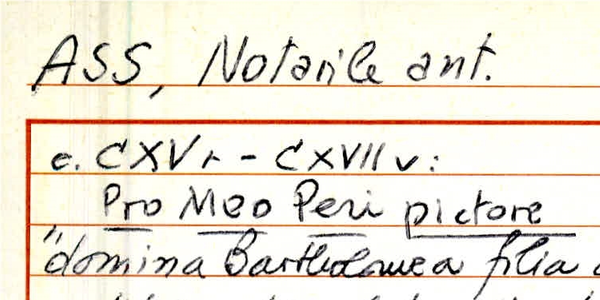 ASS, Notarile ant.
c. CXVr - CXVIIv:
Pro Meo Peri pictore
"domina Bartholomea filia